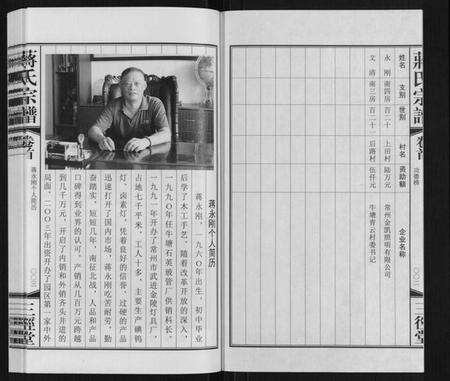 蒋氏宗谱
卷首
功德榜
三径堂
姓名 支别 世别 村名 资助额 企业名称
永刚 南四房 百二十 上田村 陆万元 常州金凯照明有限公司
文清 南三房 百二十一 后路村 伍仟元 牛塘青云村委书记
蒋氏宗谱
卷首
蒋永刚个人简历
三径堂
蒋永刚个人简历
蒋永刚,一九六〇年出生,初中毕业
后学了木工手艺,随着改革开放的深入,
一九九〇年任牛塘石英玻管厂供销科长,
一九九一年开办了常州市武进金陵灯具厂,
占地七千平米,工人十多,主要生产碘钨
灯、卤素灯,凭着良好的信誉,过硬的产品
迅速打开了国内市场,蒋永刚吃苦耐劳,勤
奋踏实,短短几年,南征北战,人品和产品
口碑得到业界的认可。产销从几百万元跨越
到几千万元,开启了内销和外销齐头并进的
局面,二〇〇三年出资开办了园区第一家中外